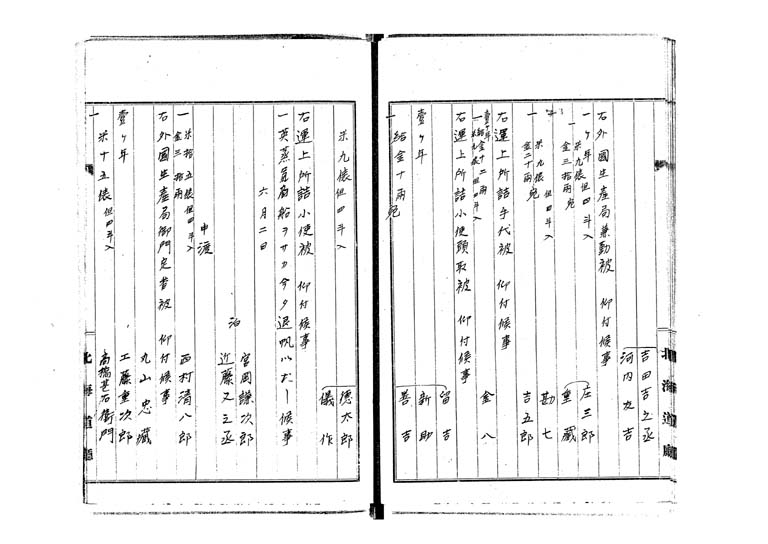 吉田吉之丞
河内友吉
右外国生産局兼勤被 仰付候事
一 壱ヶ年 米九俵但四斗入 金三拾両宛
庄三郎
重蔵
一 米九俵但四斗入 金二十両宛
勘七
吉五郎
右運上所詰手代被 仰付候事
壱ヶ年
一 給金十二両 米九俵但四斗入
金八
右運上所詰小使頭取被 仰付候事
留吉
壱ヶ年
新助
一 給金十両宛
善吉
米九俵但四斗入
徳太郎
儀作
右運上所詰小使被 仰付候事
一 英蒸気商船ヲサカ今夕退帆いたし候事
六月二日
宮岡謙次郎
泊
近藤又之丞
申渡
一 米拾五俵但四斗入 金三拾両
西村清八郎
右外国生産局御門定番被 仰付候事
丸山忠蔵
壱ヶ年
工藤重次郎
一 米十五俵但四斗入
高橋甚右衛門
北海道庁
北海道庁